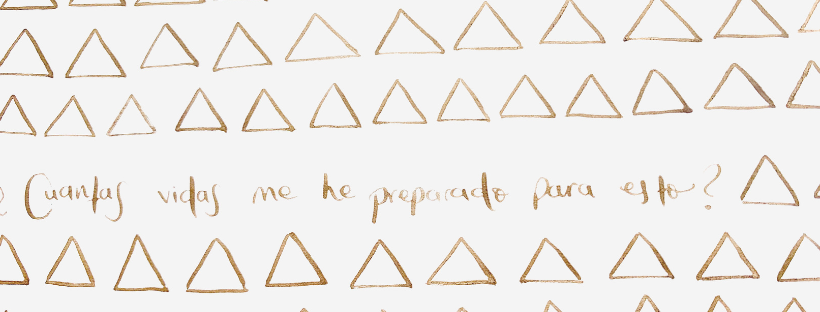 ¿Cuantas vidas me he preparado para esto?